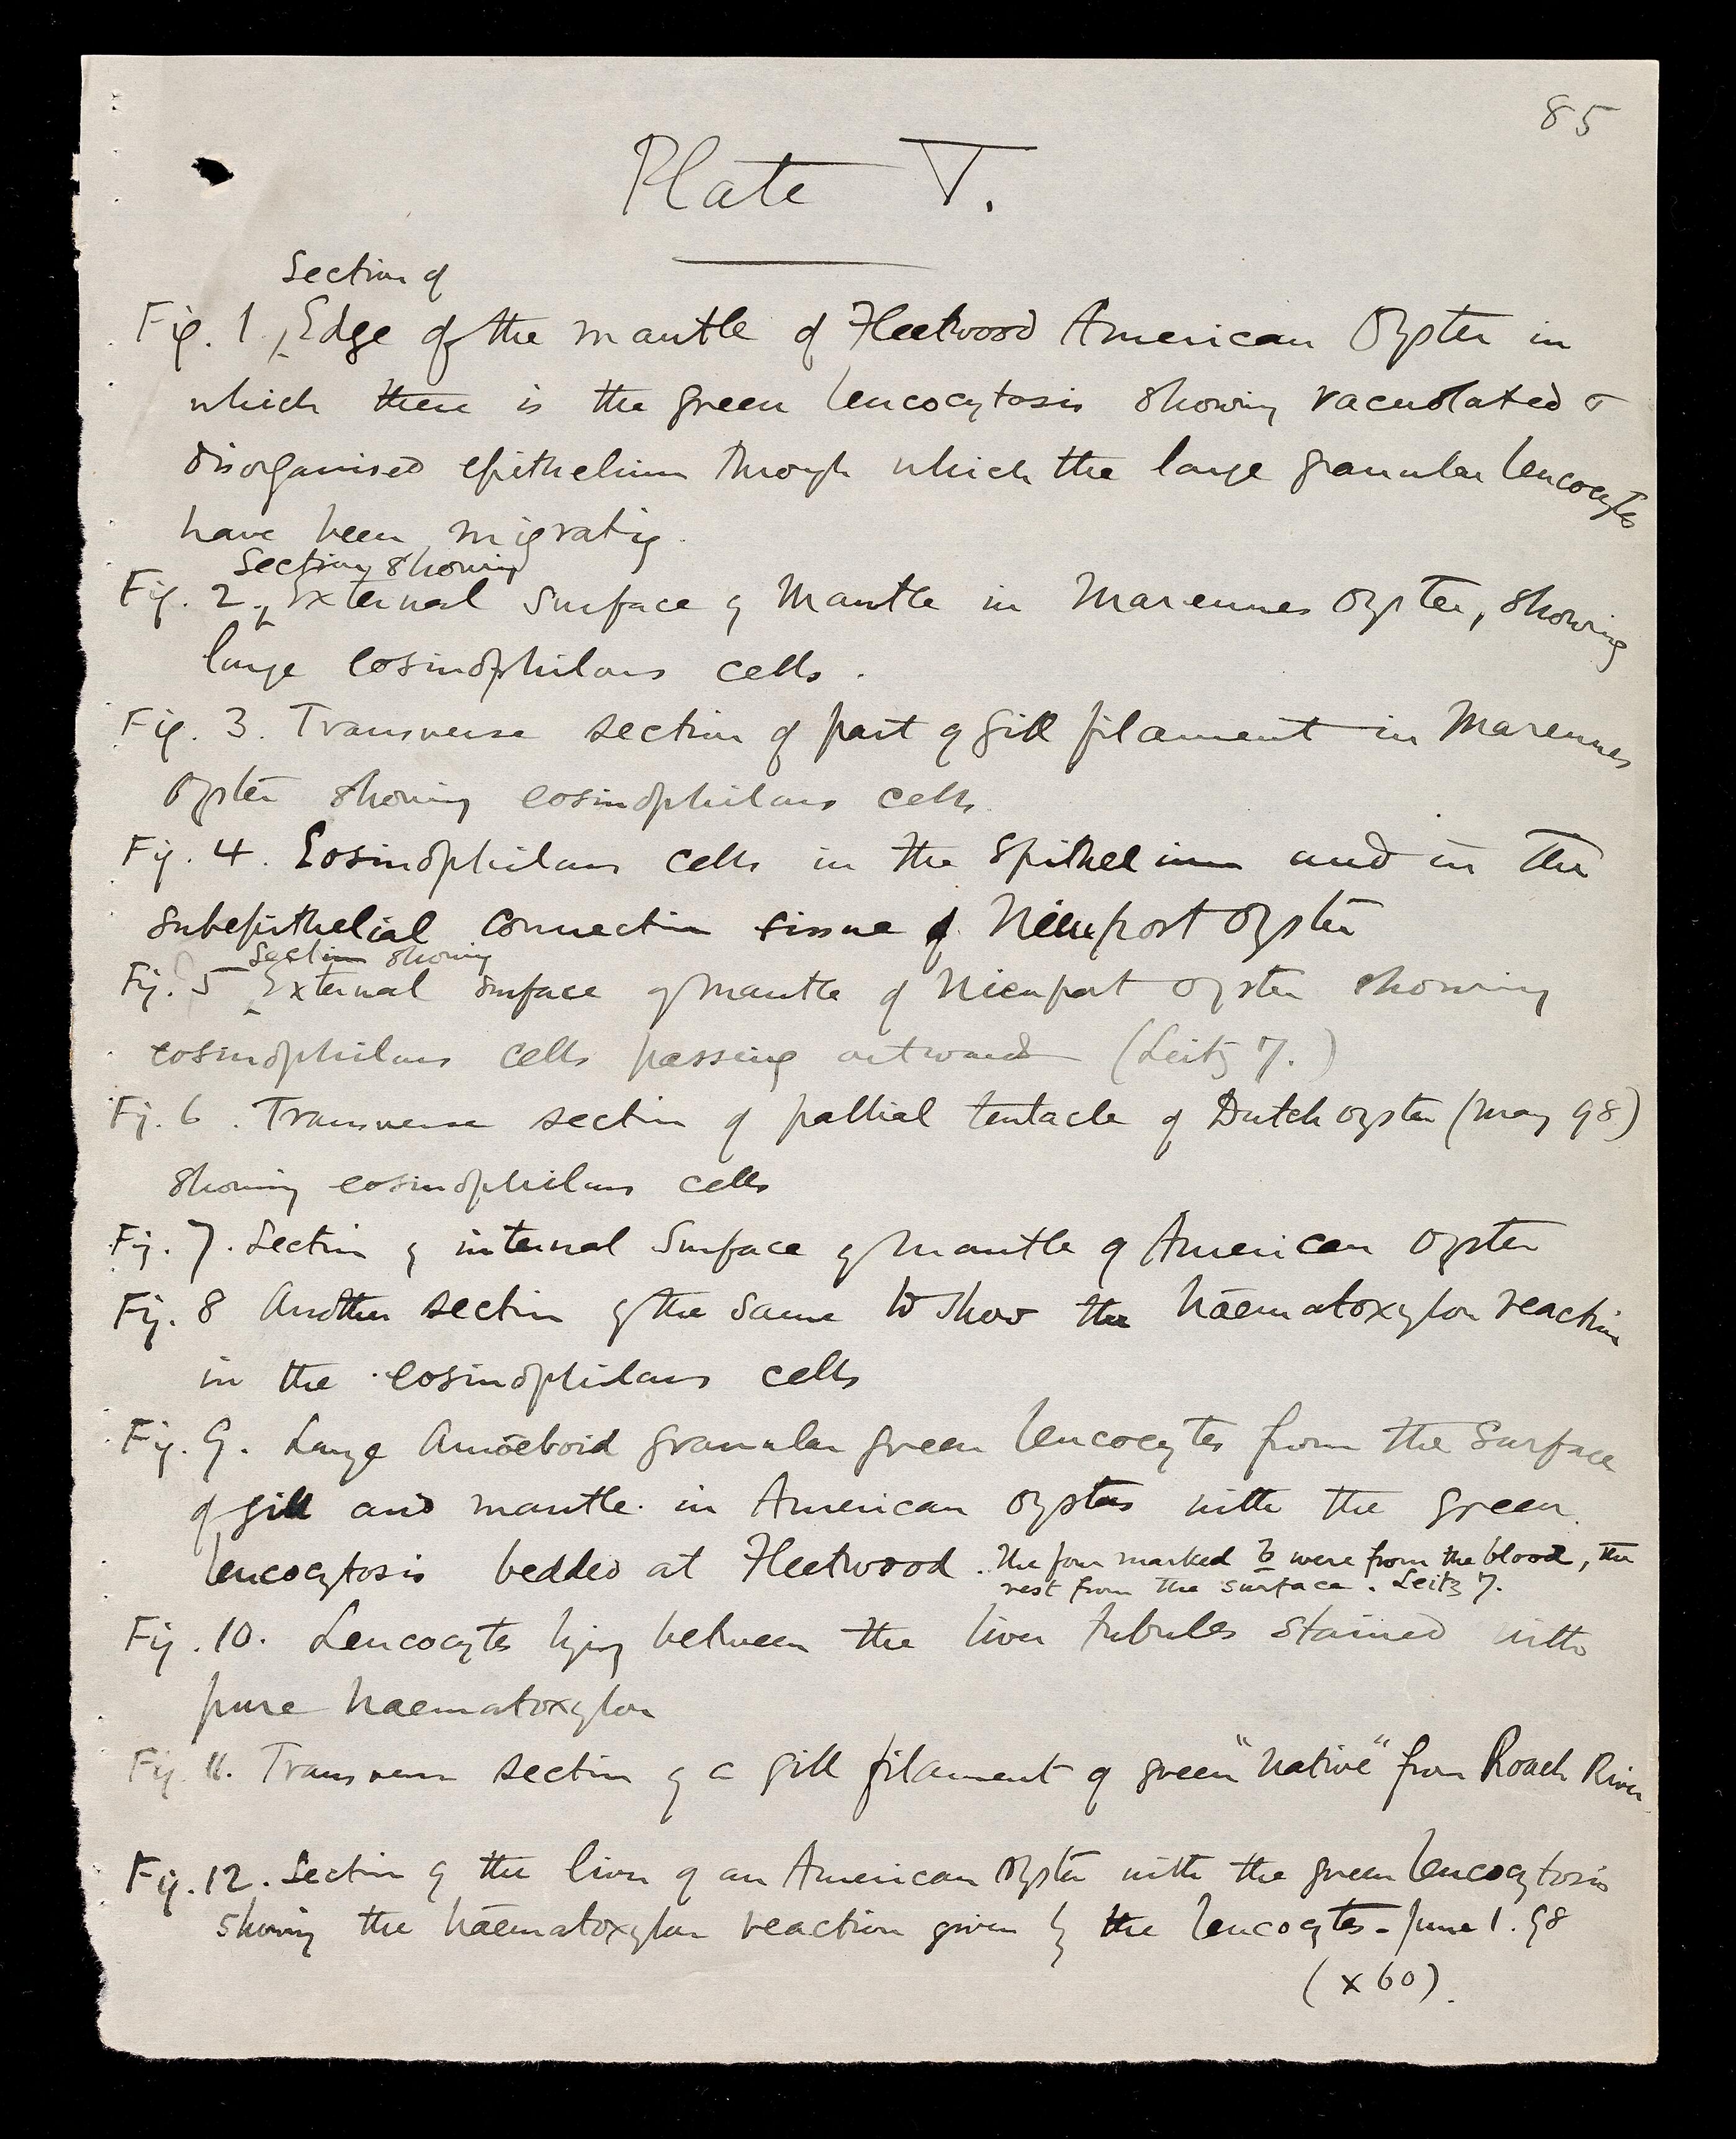 85
Plate V.
Section of
Fig. 1. Edge of the mantle of Fleetwood American Oyster in
which there is the green leucocytosis showing vacuolated &
disorganised epithelium through which the large granular leucocytes
have been migrating.
Section showing
Fig. 2. External surface of Mantle in Marennes Oyster, showing
large eosinophilous cells.
Fig. 3. Transverse section of part of gill filament in Marennes
Oyster showing eosinophilous cells.
Fig. 4. Eosinophilous cells in the epithelium and in the
subepithelial connective tissue of Nieuport Oyster
Section showing
Fig. 5 External surface of mantle of Nieuport oyster showing
eosinophilous cells passing outwards (Leitz 7.)
Fig. 6. Transverse section of pallial tentacle of Dutch oyster (May 98)
showing eosinophilous cells
Fig. 7. Section of internal surface of mantle of American Oyster
Fig. 8 Another section of the same to show the haematoxylon reaction
in the eosinophilous cells
Fig. 9. Large Amoeboid granular green leucocytes from the surface
of gill and mantle in American Oysters with the green
leucocytosis bedded at Fleetwood. The four marked b were from the blood, the
rest from the surface. Leitz 7.
Fig. 10. Leucocytes lying between the liver tubules stained with
pure haematoxylon
Fig. 11. Transverse section of a gill filament of green "native" from Roach River
Fig. 12. Section of the liver of an American Oyster with the green leucocytosis
showing the haematoxylon reaction given by the leucocytes - June 1. 98
(x 60).